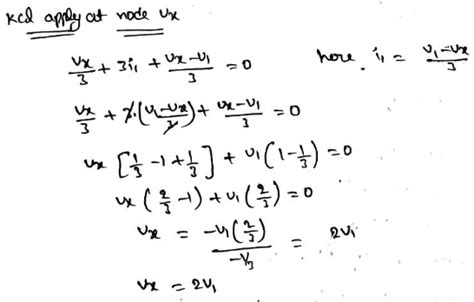 kcl apply at node vx
vx/3 + 3i1 + (vx-v1)/3 = 0 here. i1 = (v1-vx)/3
vx/3 + 3.(v1-vx)/3 + (vx-v1)/3 = 0
vx [1/3 -1 + 1/3] + v1(1-1/3) = 0
vx (2/3 -1) + v1 (2/3) = 0
vx = -v1(2/3)/(-1/3) = 2v1
vx = 2v1